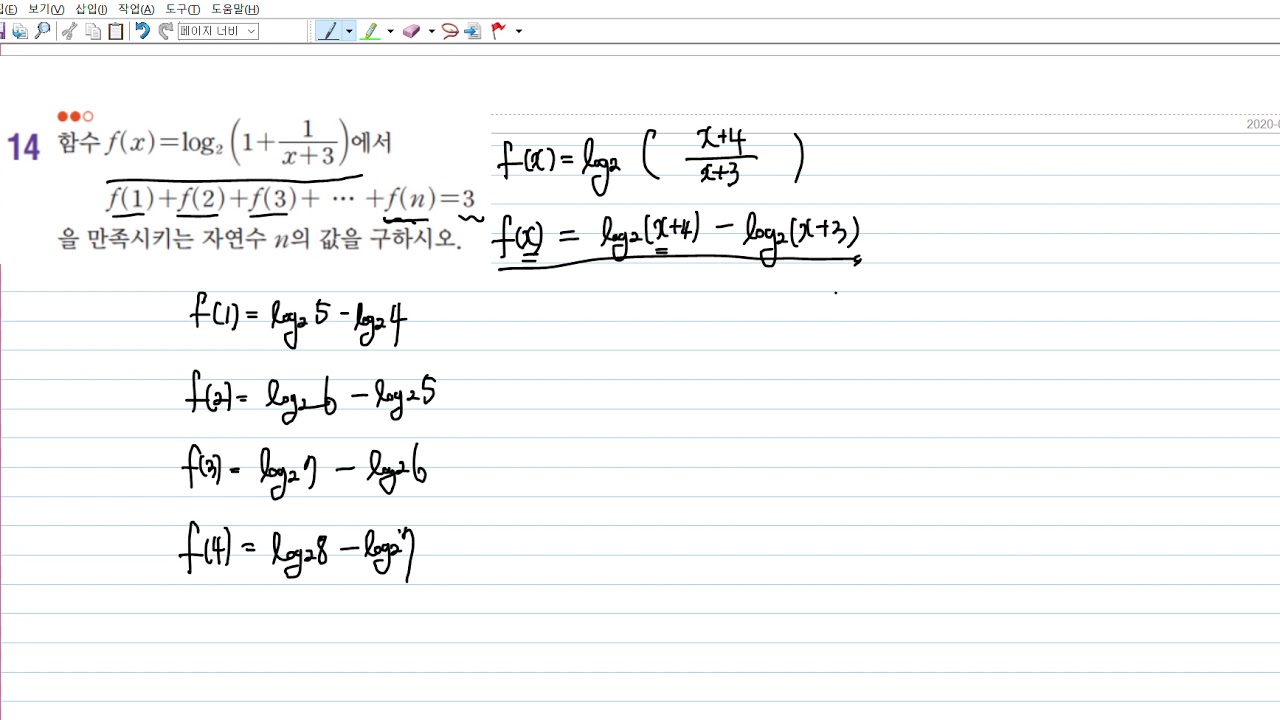 (E) 보기(V) 삽입(I) 작업(A) 도구(T) 도움말(H)
페이지 너비
2020-
14 함수 f(x)=log₂(1+1/(x+3))에서
f(1)+f(2)+f(3)+ ⋯ +f(n)=3
을 만족시키는 자연수 n의 값을 구하시오.
f(x)=log₂((x+4)/(x+3))
f(x) = log₂(x+4) − log₂(x+3)
f(1)= log₂5 - log₂4
f(2)= log₂6 − log₂5
f(3)= log₂7 − log₂6
f(4) = log₂8 − log₂7